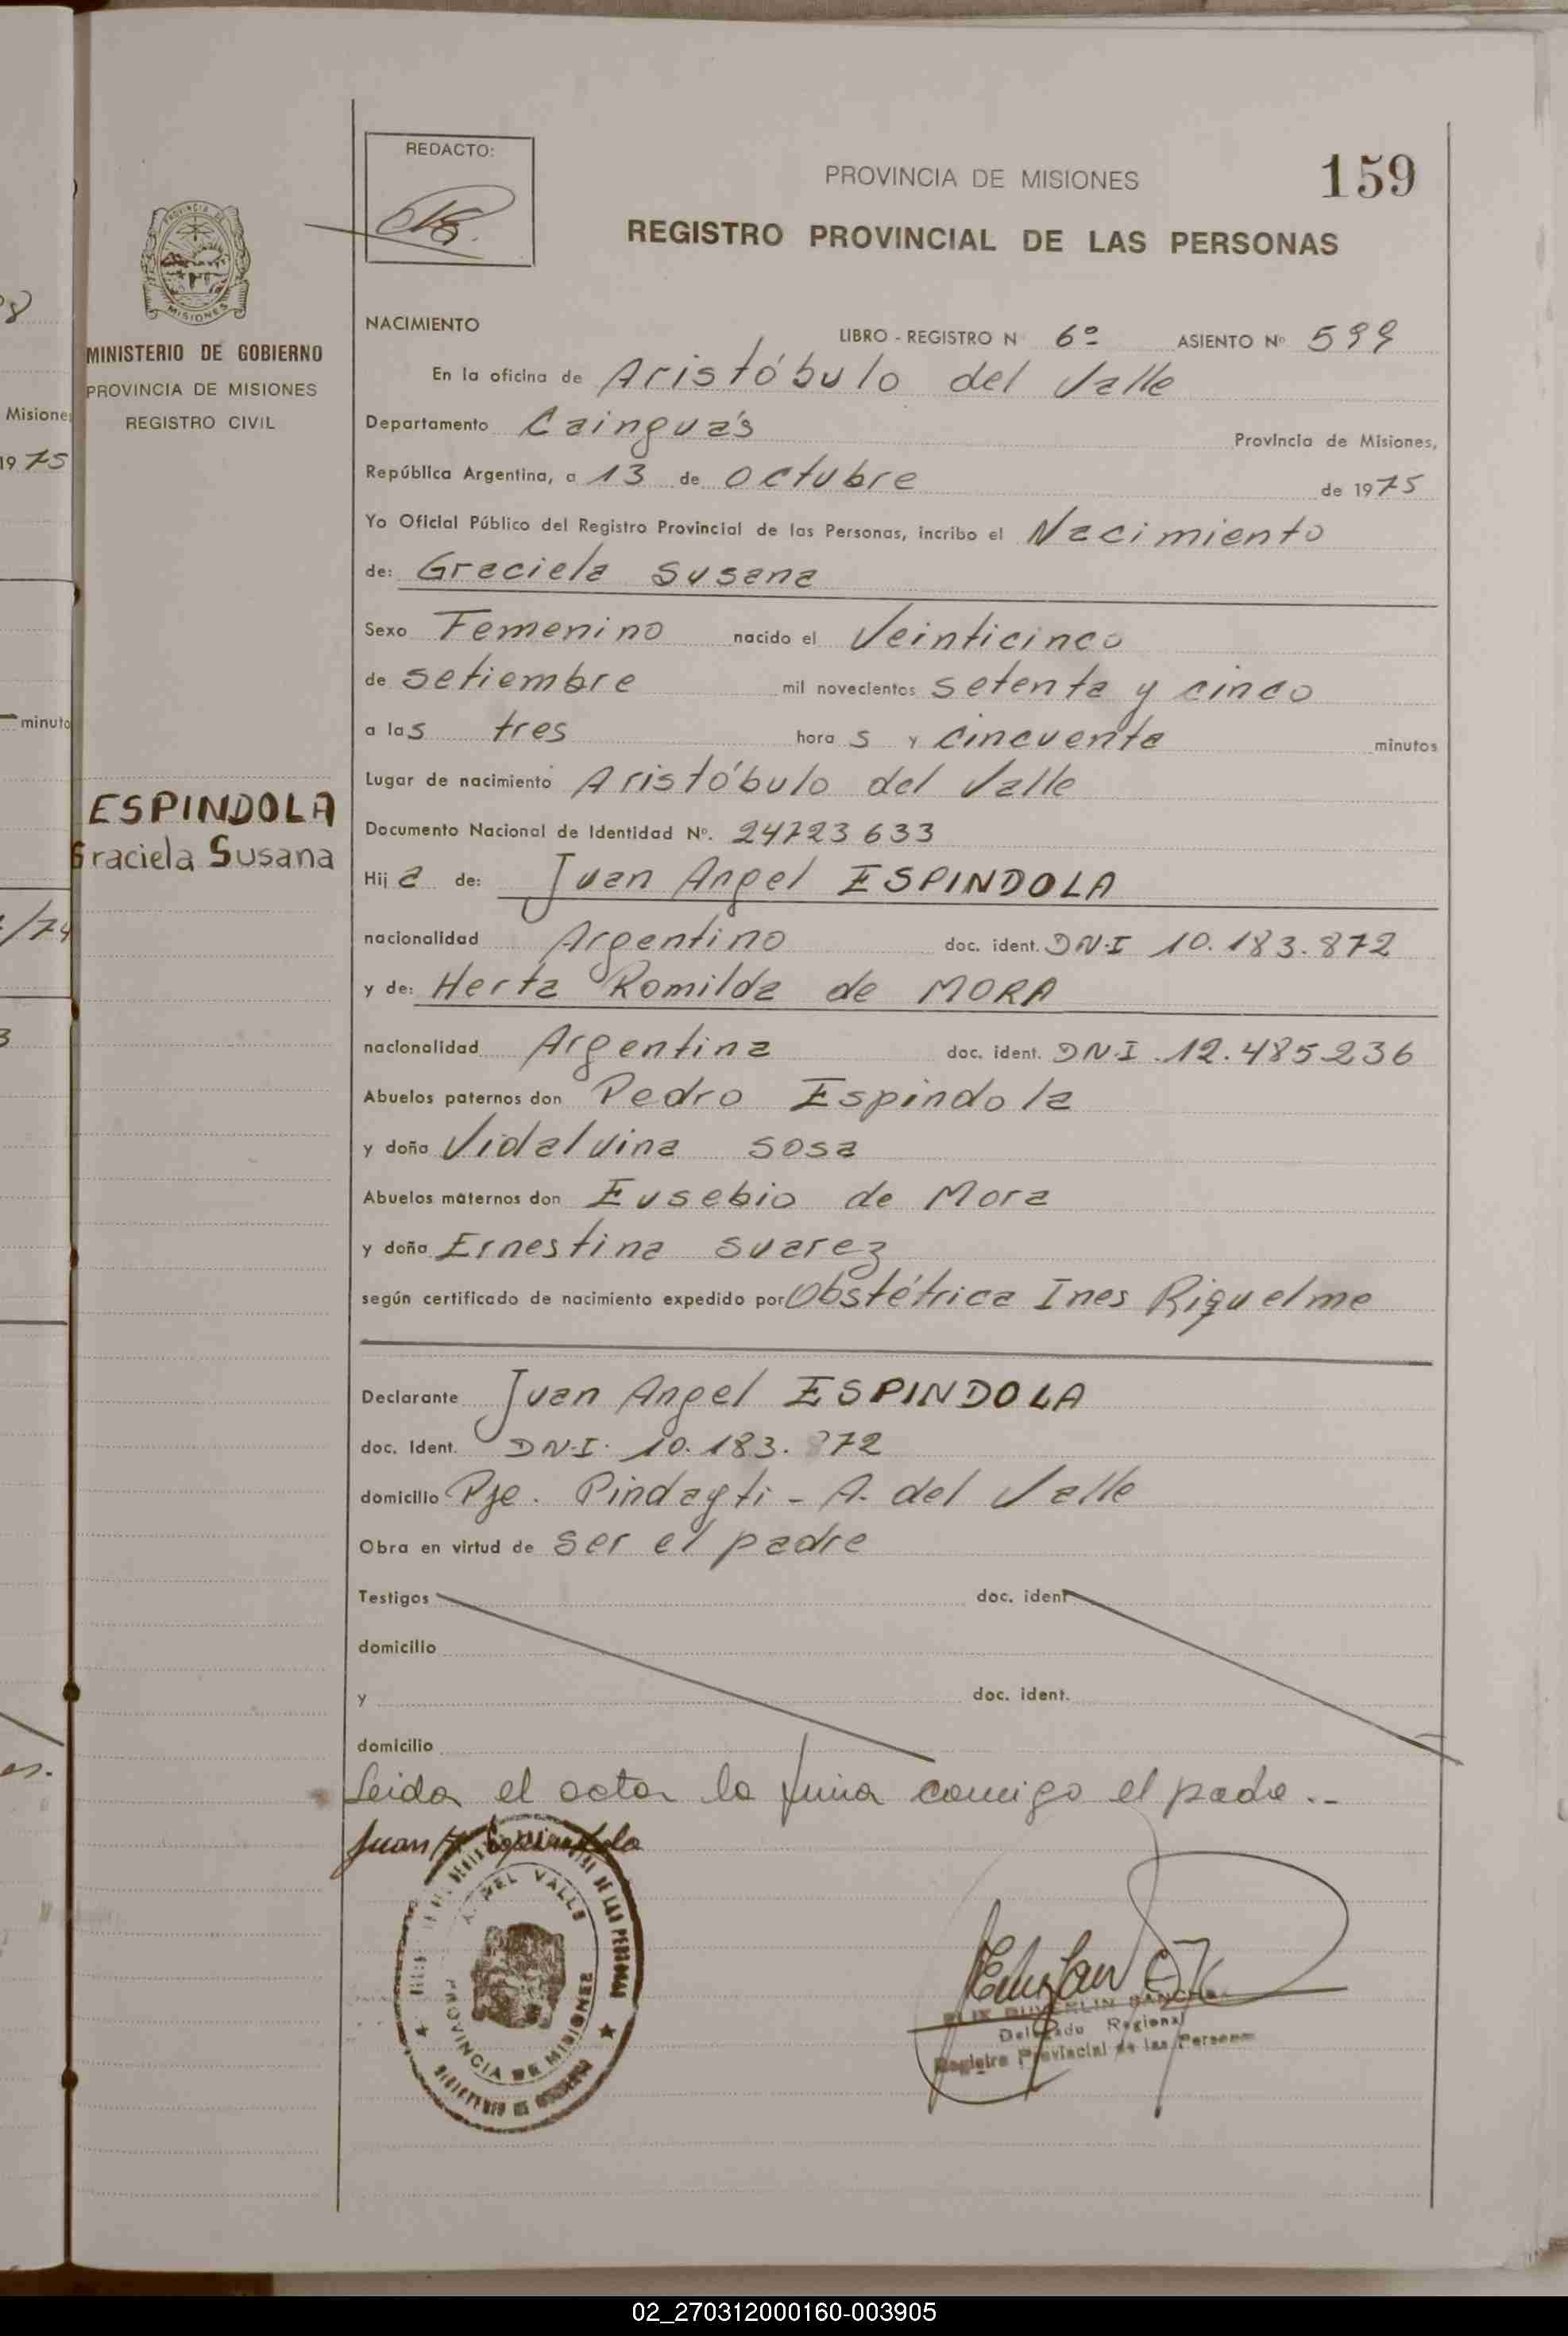 REDACTO:
PROVINCIA DE MISIONES
159
REGISTRO PROVINCIAL DE LAS PERSONAS
PROVINCIA DE
MISIONES
MINISTERIO DE GOBIERNO
PROVINCIA DE MISIONES
REGISTRO CIVIL
Misione
1975
minuto
NACIMIENTO LIBRO - REGISTRO N 6º ASIENTO Nº 599
En la oficina de Aristóbulo del Valle
Departamento Cainguás Provincia de Misiones,
República Argentina, a 13 de octubre de 1975
Yo Oficial Público del Registro Provincial de las Personas, incribo el Nacimiento
de: Graciela Susana
Sexo Femenino nacido el Veinticinco
de setiembre mil novecientos setenta y cinco
a las tres hora s y cincuenta minutos
Lugar de nacimiento Aristóbulo del Valle
ESPINDOLA
Graciela Susana
Documento Nacional de Identidad Nº. 24723633
Hij a de: Juan Angel ESPINDOLA
nacionalidad Argentino doc. ident. DN.I 10.183.872
y de: Herta Romilda de MORA
nacionalidad Argentina doc. ident. DN.I .12.485236
Abuelos paternos don Pedro Espindola
y doña Vidalvina sosa
Abuelos maternos don Eusebio de Mora
y doña Ernestina suarez
según certificado de nacimiento expedido por Obstétrica Ines Riquelme
Declarante Juan Angel ESPINDOLA
doc. Ident. DN.I. 10.183.872
domicilio Pje. Pindayti - A. del Valle
Obra en virtud de ser el padre
Testigos doc. ident
domicilio
y doc. ident.
domicilio
Leida el acta la firma comigo el padre.-
Juan A Espindola
A. DEL VALLE
PROVINCIA DE MISIONES
DE LAS PERSONAS
MINISTERIO DE GOBIERNO
Delegado Regional
Registro Provincial de las Personas
02_270312000160-003905